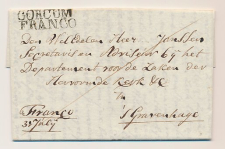 GORCUM
FRANCO
Den WelEdelen Heer Janssen
Secretaris en Adviseur by het
Departement voor de Zaken der
Hervormde Kerk &c
te
Franco
's Gravenhage